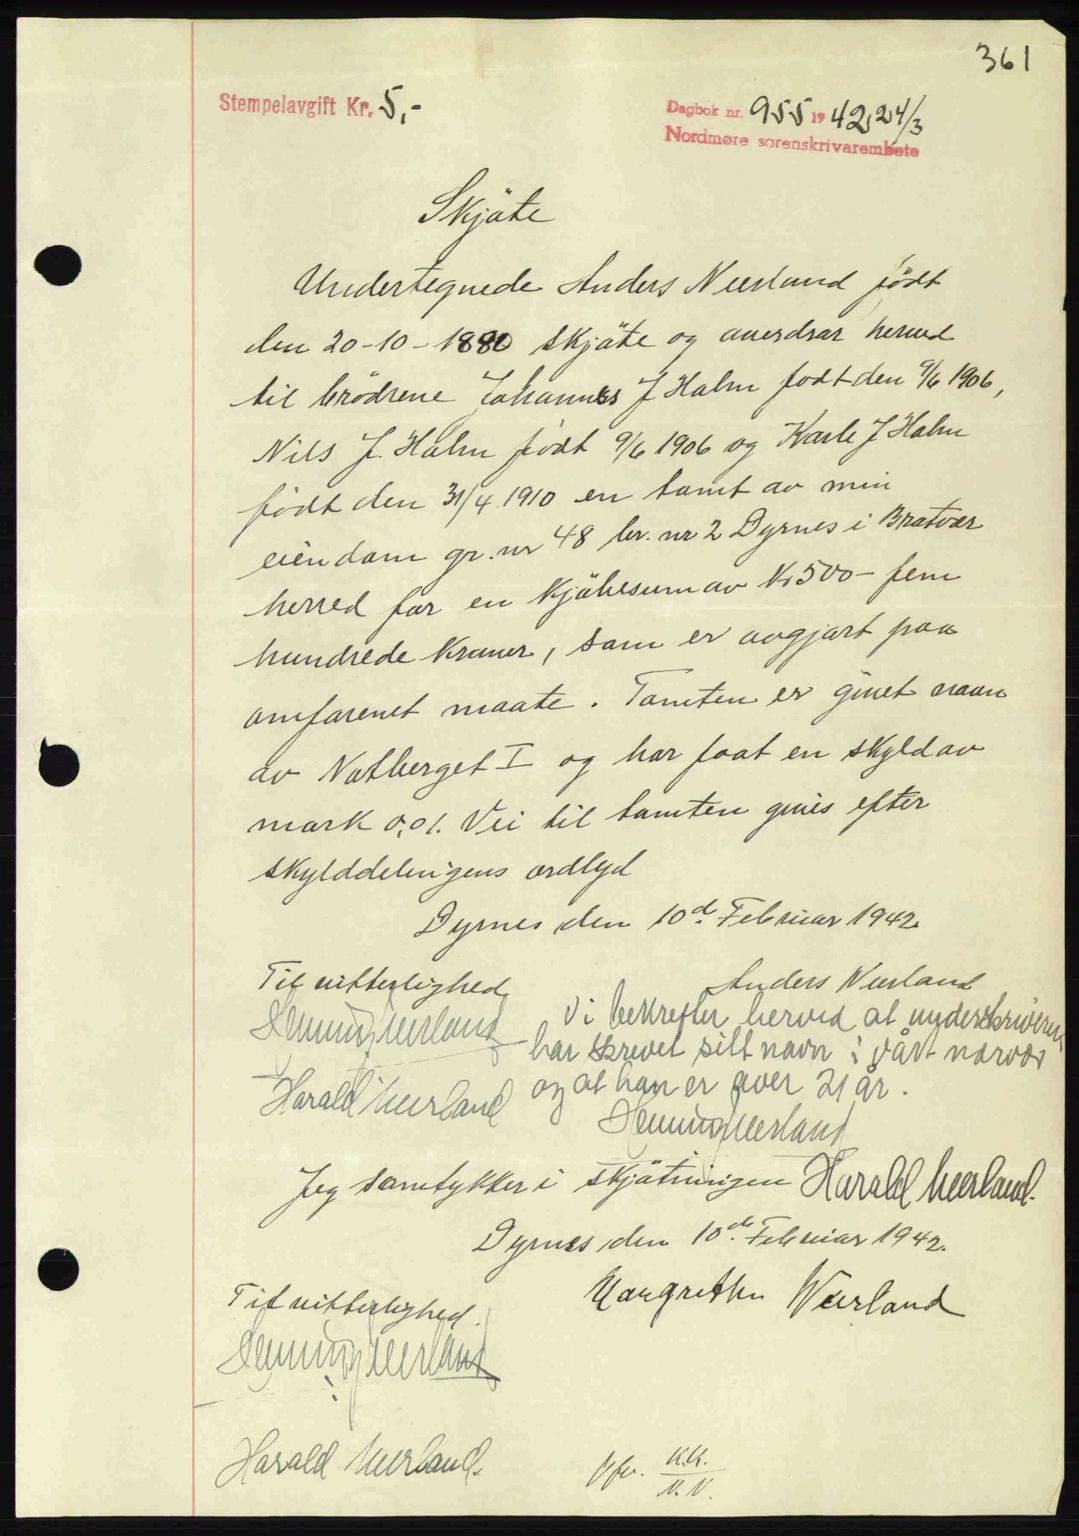 361
Stempelavgift Kr. 5,-
Dagbok nr. 955 1942, 24/3
Nordmøre sorenskrivarembete
Skjöte
Undertegnede Anders Neerland født
den 20-10-1880 skjöte og averdrar herved
til brödrene Johannes J Halm født den 9/6 1906,
Nils J. Halm født 9/6 1906 og Karle J Halm
født den 31/4 1910 en tomt av min
eiendom gr. nr 48 br. nr 2 Dyrnes i Bratvær
herred for en kjöbesum av Kr 500- fem
hundrede kroner, som er avgjort paa
omforenet maate. Tomten er givet navn
av Notberget I og har faat en skyld av
mark 0,01. Vei til tomten givis efter
skylddelingens ordlyd
Dyrnes den 10d. Februar 1942.
Til vitterlighed
Anders Neerland
Henning Neerland
Vi bekrefter herved at underskriveren
har skrevet sitt navn i vårt nærvær
Harald Neerland
og at han er over 21 år.
Henning Neerland
Jeg samtykker i skjötningen Harald Neerland.
Dyrnes den 10de. Februar 1942.
Til vitterlighed.
Margrethe Neerland
Henning Neerland
Harald Neerland.